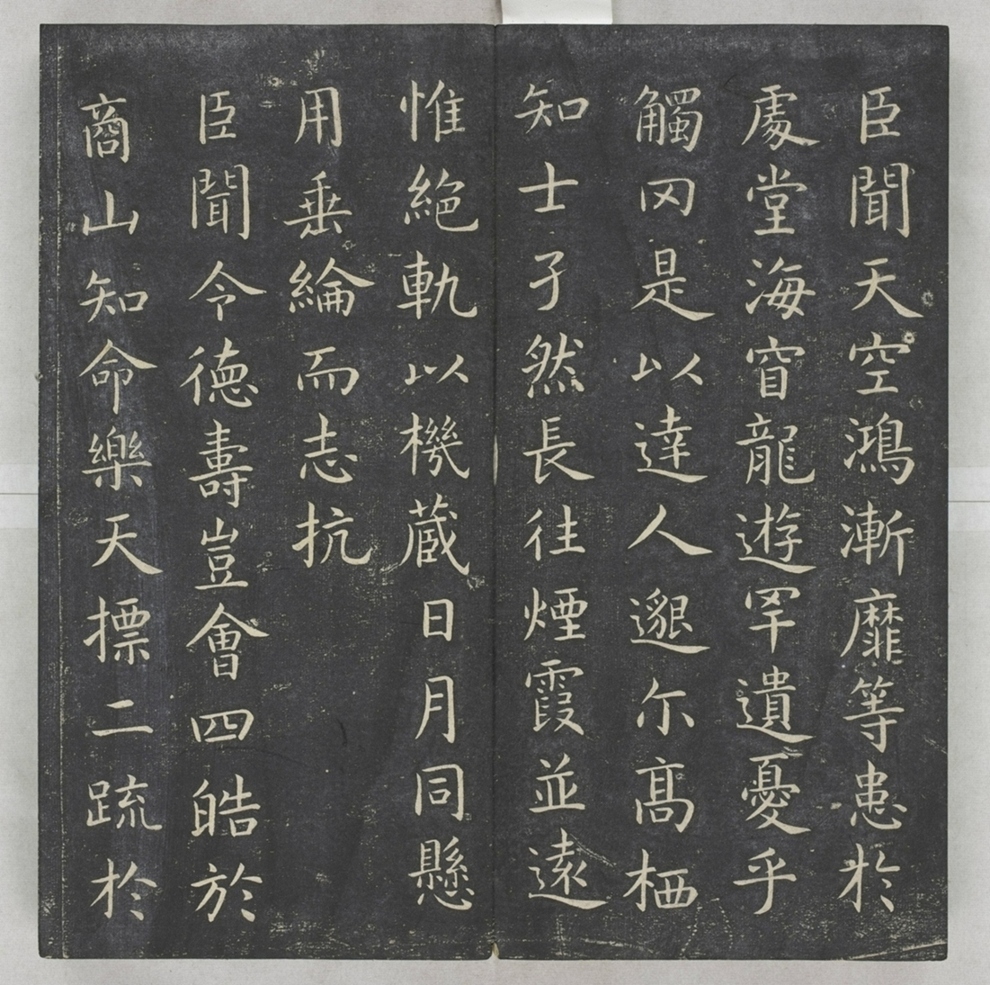 臣聞天空鴻漸靡等患於
處堂海窅龍遊罕遺憂乎
觸罔是以達人邈尓高栖
知士孑然長往煙霞並遠
惟絕軌以機蔵日月同懸
用垂綸而志抗
臣聞令德壽豈會四皓於
商山知命樂天摽二疏於